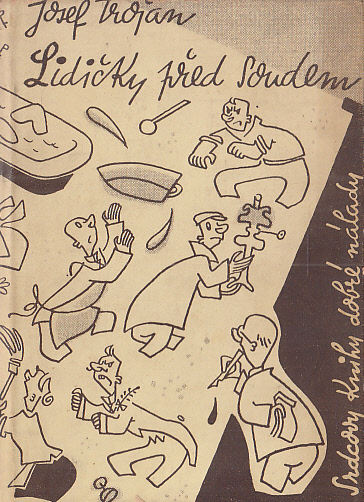 Josef Trojan
Lidičky před soudem
Knihy dobré nálady